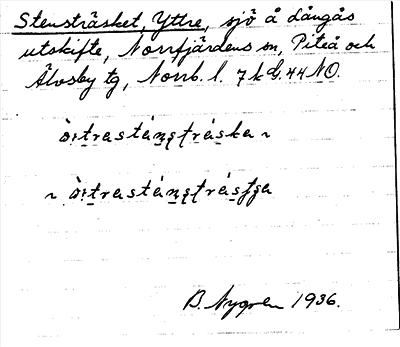 Stensträsket, Yttre, sjö å Långås
utskifte, Norrfjärdens sn, Piteå och
Älvsby tg, Norrb. l. 7 k d. 44 NO.
ò̀ːtrastáns̥tráska ~
~ ò̀ːtrastáns̥trásʃa
B. Nygren 1936.